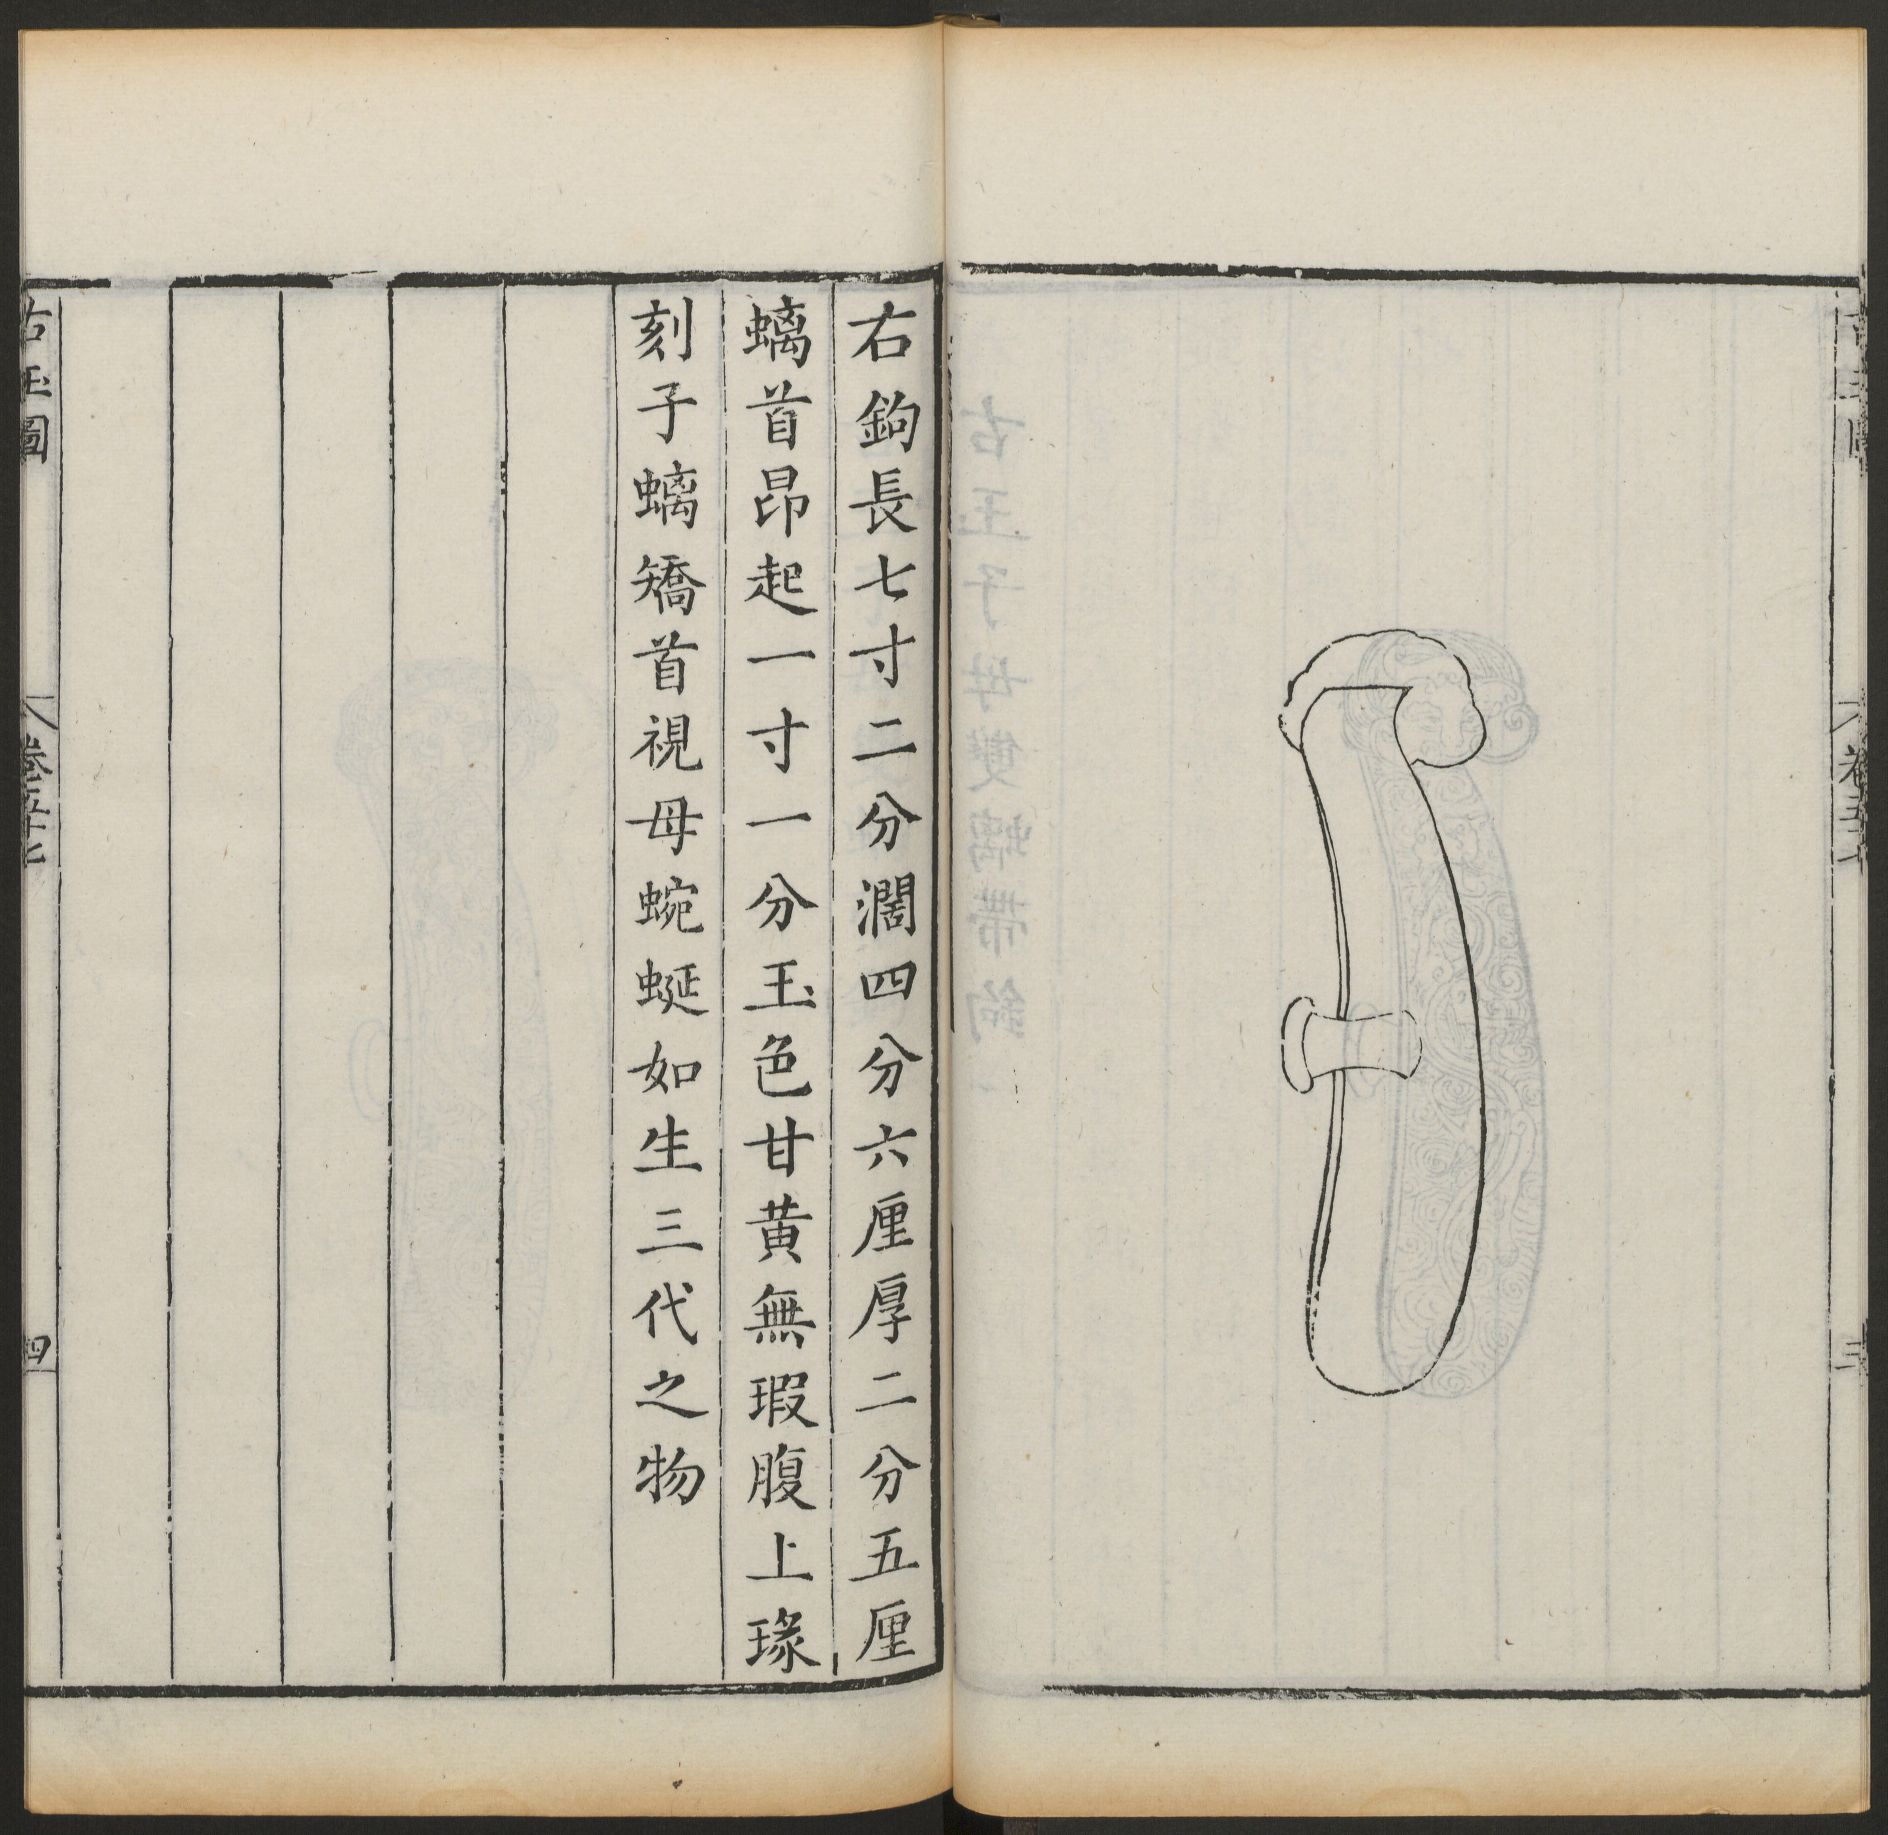 右鉤長七寸二分濶四分六厘厚二分五厘
螭首昂起一寸一分玉色甘黄無瑕腹上瑑
刻子螭矯首視母蜿蜒如生三代之物
古玉圖
卷五十七
四